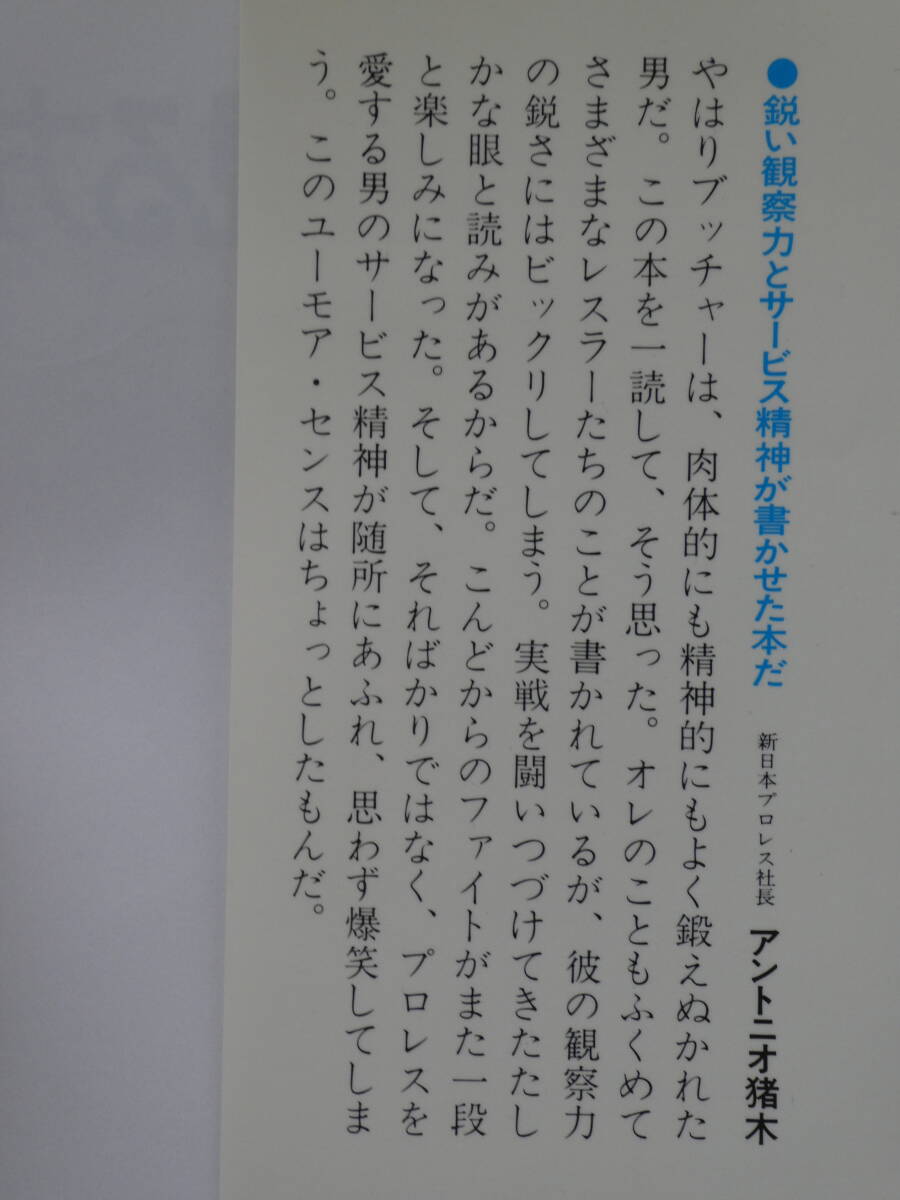 ●鋭い観察力とサービス精神が書かせた本だ
新日本プロレス社長 アントニオ猪木
やはりブッチャーは、肉体的にも精神的にもよく鍛えぬかれた
男だ。この本を一読して、そう思った。オレのこともふくめて
さまざまなレスラーたちのことが書かれているが、彼の観察力
の鋭さにはビックリしてしまう。実戦を闘いつづけてきたたし
かな眼と読みがあるからだ。こんどからのファイトがまた一段
と楽しみになった。そして、そればかりではなく、プロレスを
愛する男のサービス精神が随所にあふれ、思わず爆笑してしま
う。このユーモア・センスはちょっとしたもんだ。